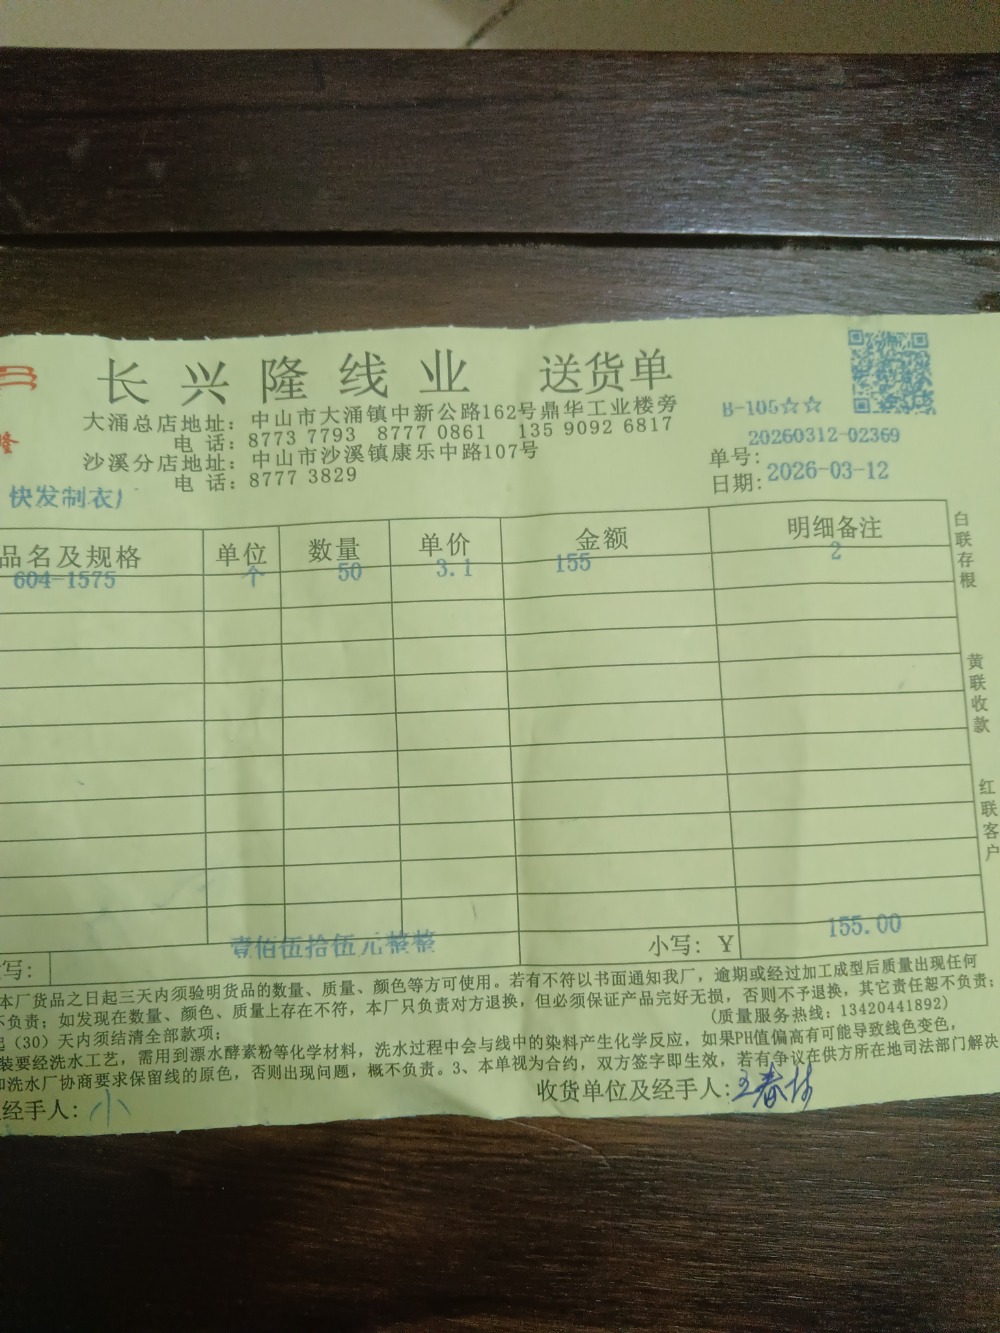 长兴隆线业 送货单
隆
大涌总店地址：中山市大涌镇中新公路162号鼎华工业楼旁
电 话：8773 7793 8777 0861 135 9092 6817
沙溪分店地址：中山市沙溪镇康乐中路107号
电 话：8777 3829
B-105☆☆
单号：20260312-02369
日期：2026-03-12
快发制衣厂
品名及规格 单位 数量 单价 金额 明细备注
604-1575 个 50 3.1 155 2
白联存根
黄联收款
红联客户
写： 壹佰伍拾伍元整整 小写：￥ 155.00
本厂货品之日起三天内须验明货品的数量、质量、颜色等方可使用。若有不符以书面通知我厂，逾期或经过加工成型后质量出现任何
不负责；如发现在数量、颜色、质量上存在不符，本厂只负责对方退换，但必须保证产品完好无损，否则不予退换，其它责任恕不负责；
（30）天内须结清全部款项； (质量服务热线：13420441892)
装要经洗水工艺，需用到漂水酵素粉等化学材料，洗水过程中会与线中的染料产生化学反应，如果PH值偏高有可能导致线色变色，
洗水厂协商要求保留线的原色，否则出现问题，概不负责。3、本单视为合约，双方签字即生效，若有争议在供方所在地司法部门解决
经手人：小 收货单位及经手人：王春林